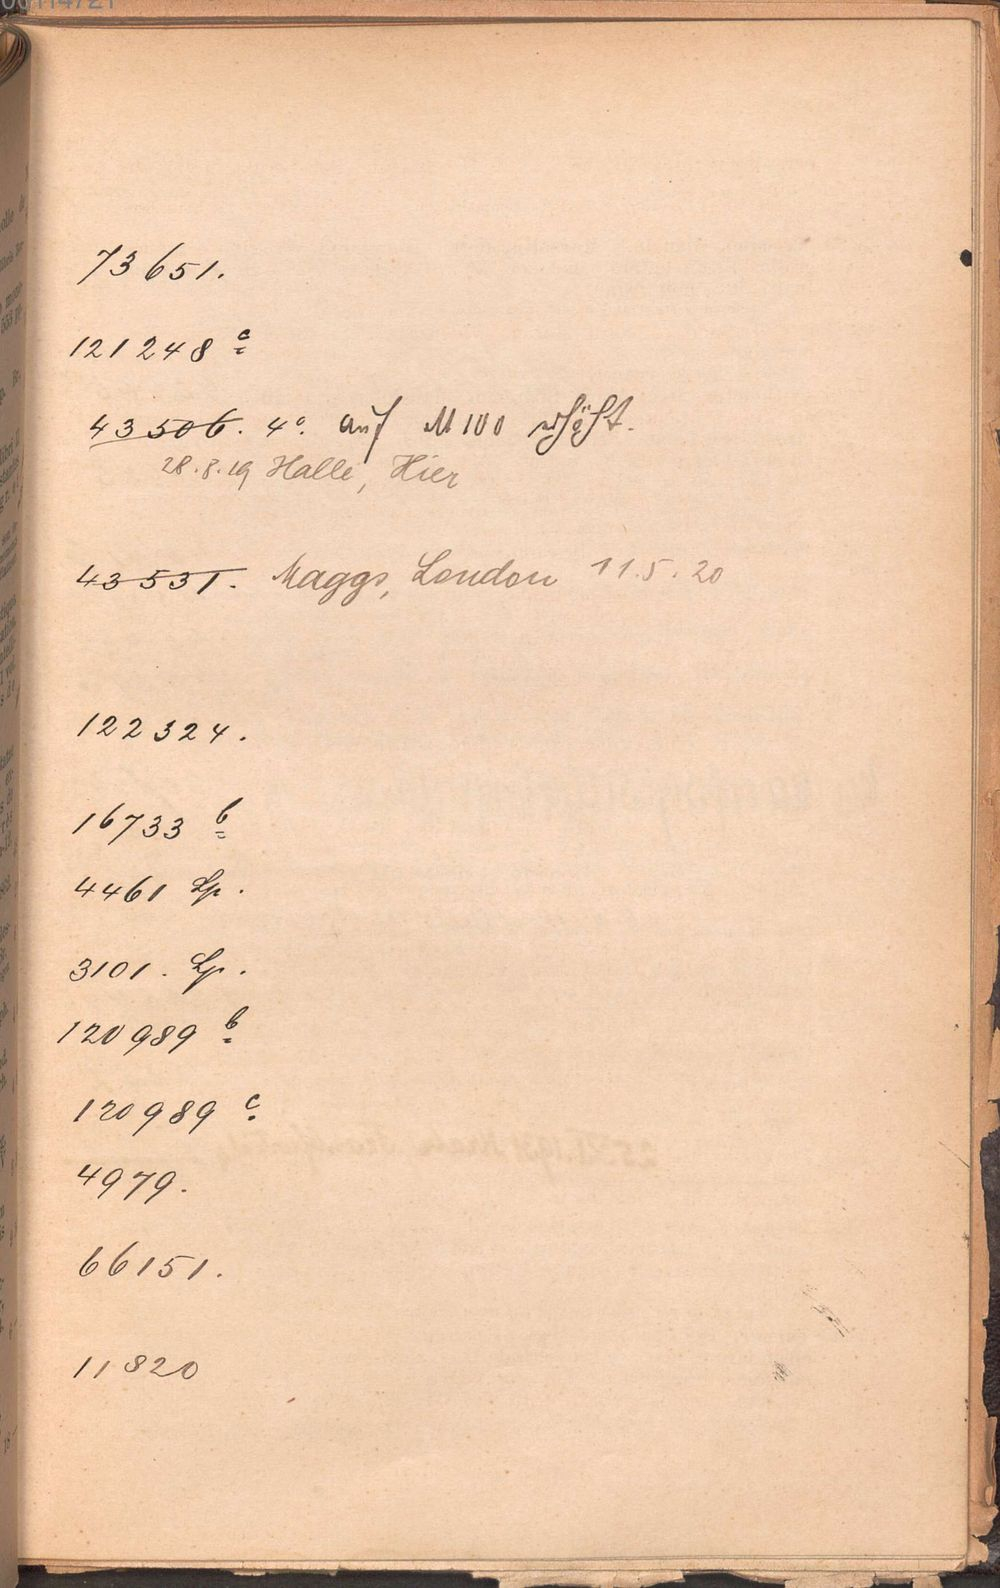 73651.
121248 c
43506. 4°. auf M 100 erhöht.
28.8.19 Halle, Hier
43531. Maggs, London 11.5.20
122324.
16733 b
4461 Lp.
3101. Lp.
120989 b
120989 c
4979.
66151.
11820